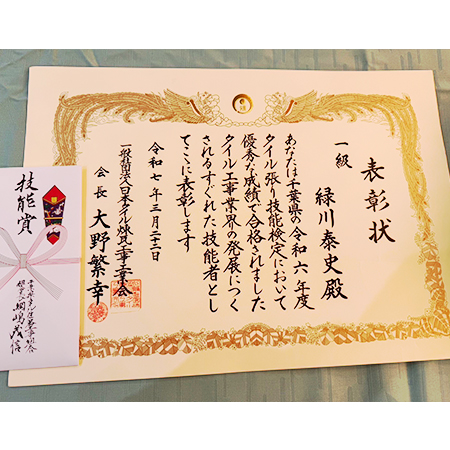 表彰状
一級
緑川泰史殿
あなたは千葉県の令和六年度
タイル張り技能検定において
優秀な成績で合格されました
タイル工事業界の発展につく
されるすぐれた技能者とし
てここに表彰します
令和七年三月二十二日
一般社団法人日本タイル煉瓦工事工業会
会長 大野繁幸
技能賞